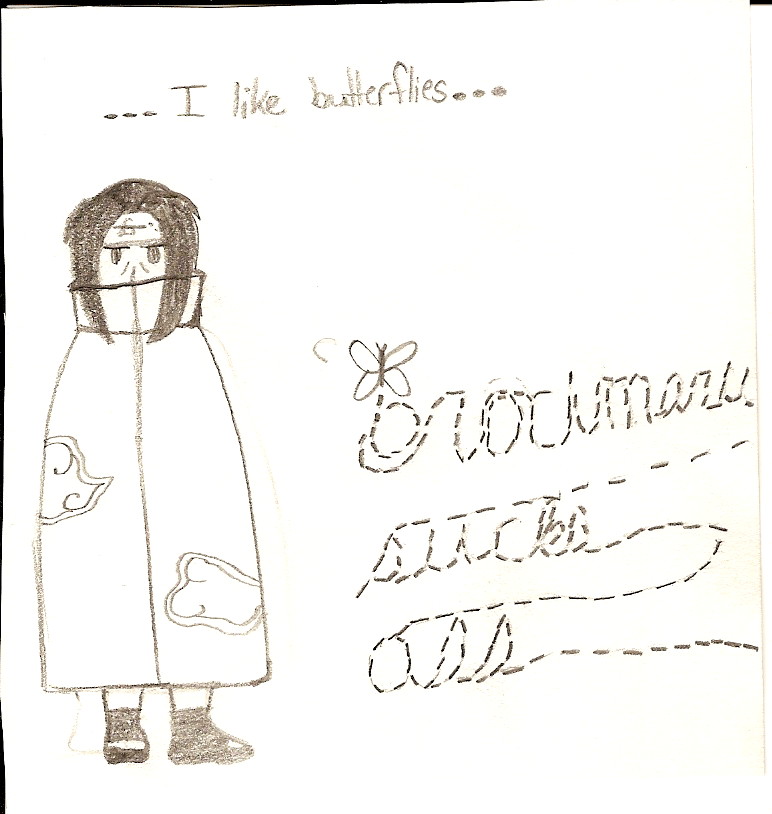 ... I like butterflies...
Orochimaru
sucks
ass